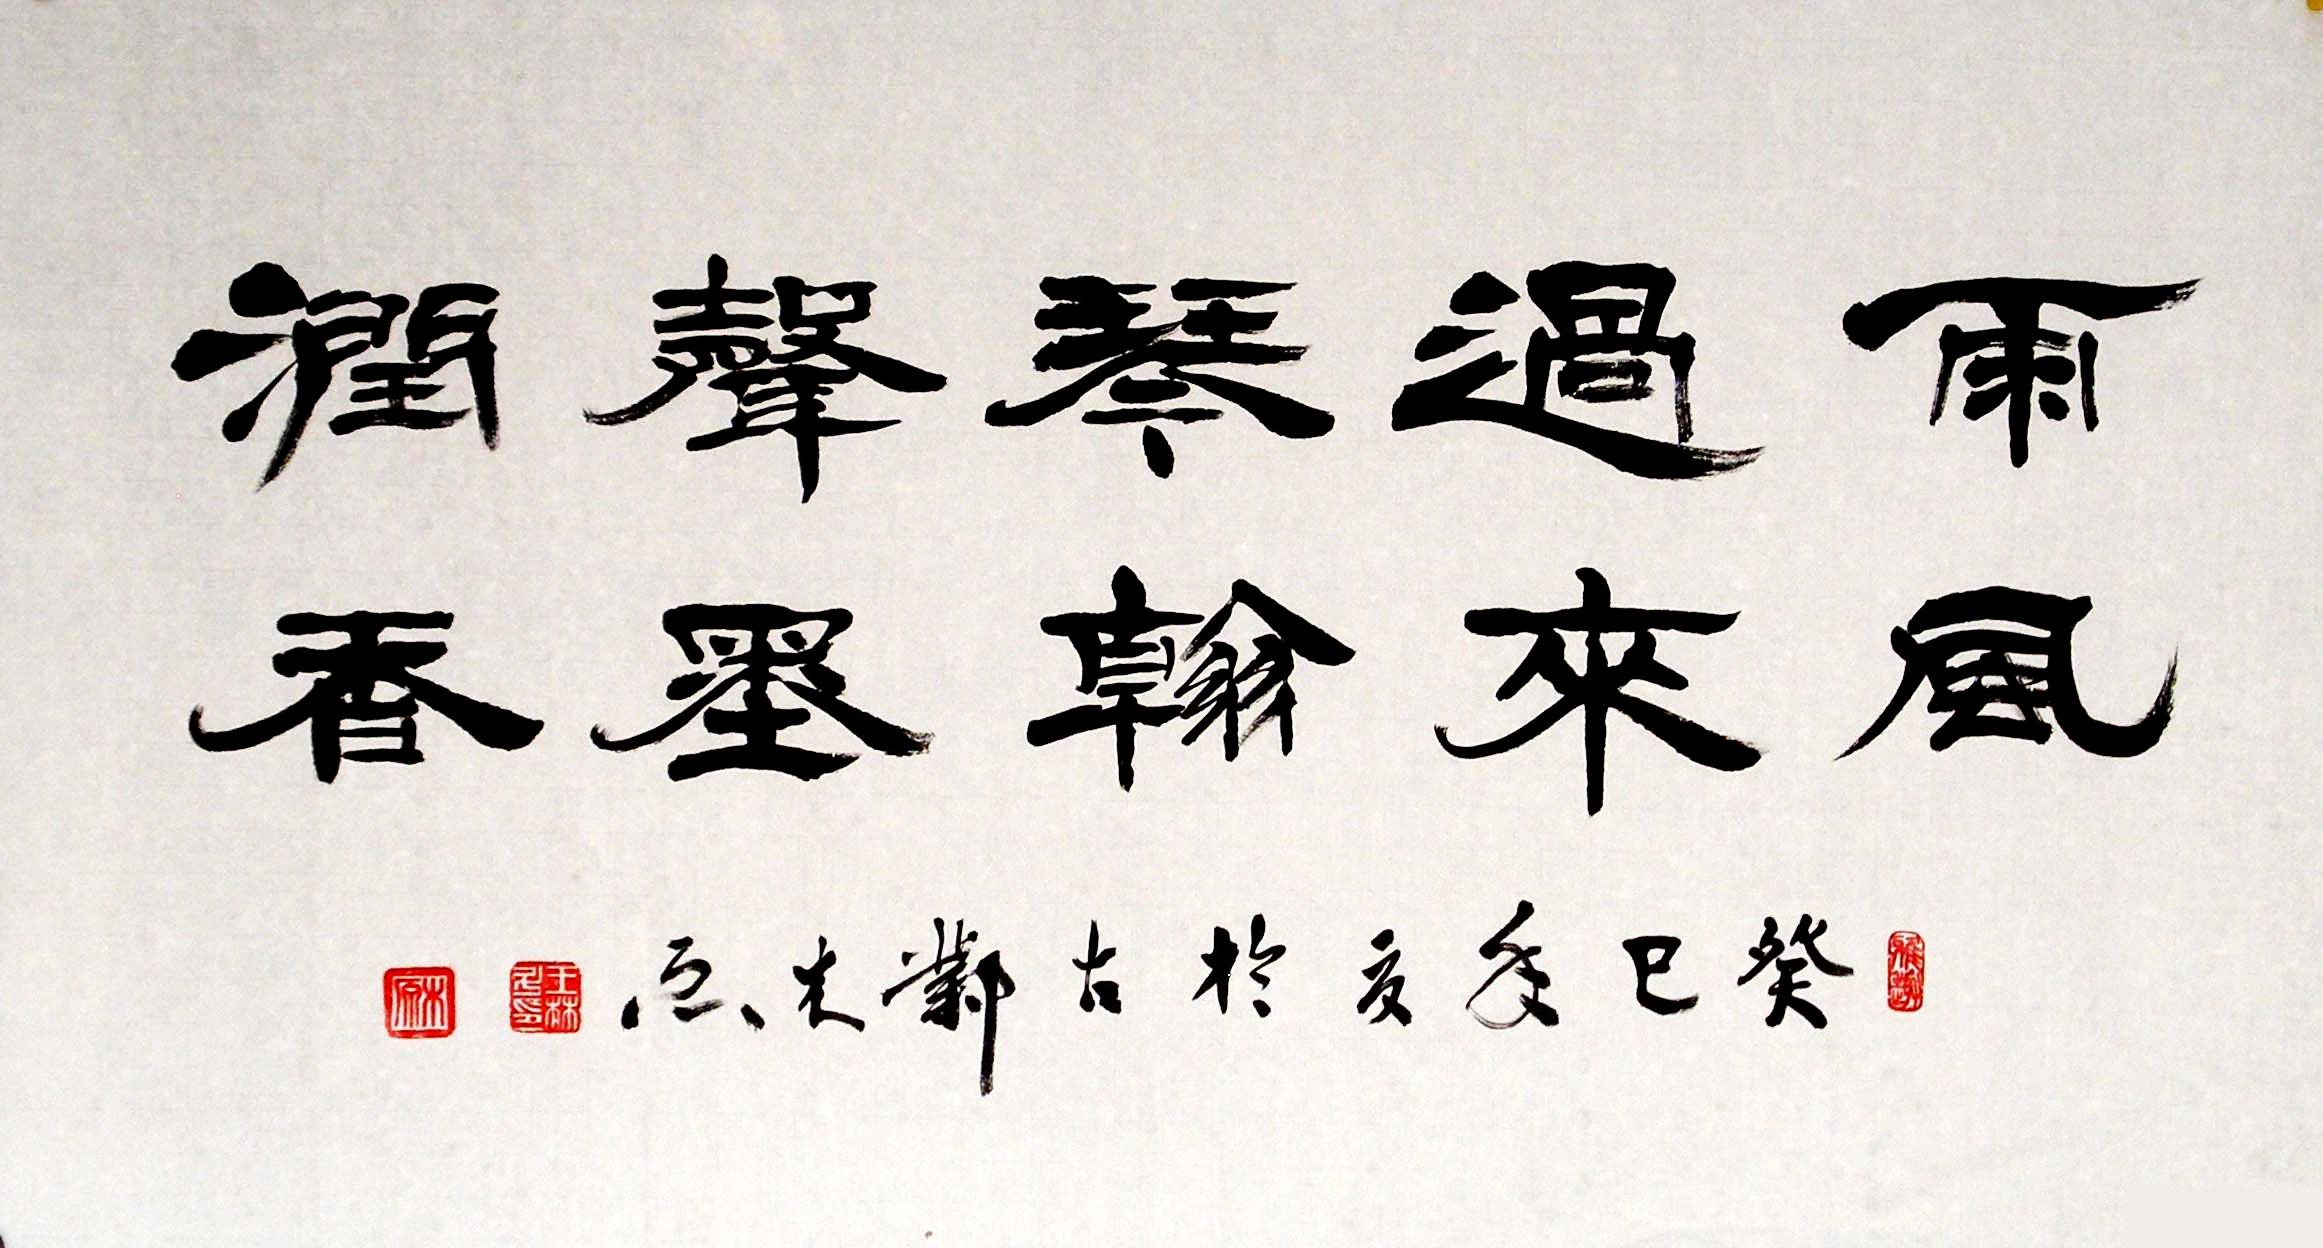 雨過琴聲潤
風來翰墨香
癸巳年夏於古鄴
王林